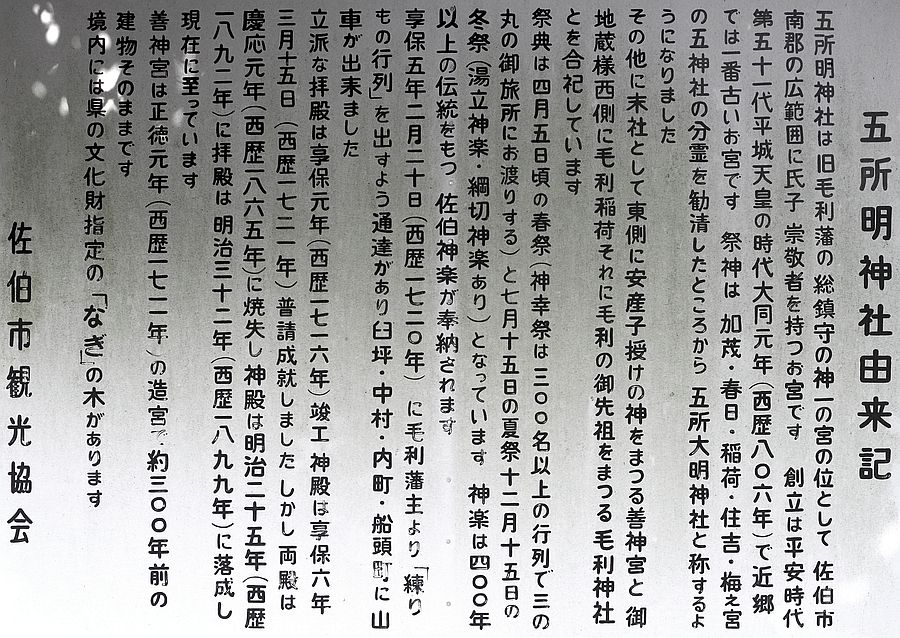 五所明神社由来記
五所明神社は旧毛利藩の総鎮守の神一の宮の位として 佐伯市
南郡の広範囲に氏子 崇敬者を持つお宮です 創立は平安時代
第五十一代平城天皇の時代大同元年(西歴八〇六年)で近郷
では一番古いお宮です 祭神は 加茂・春日・稲荷・住吉・梅え宮
の五神社の分霊を勧清したところから 五所大明神社と称するよ
うになりました
その他に末社として東側に安産子授けの神をまつる善神宮と 御
地蔵様西側に毛利稲荷それに毛利の御先祖をまつる毛利神社
とを合祀しています
祭典は四月五日頃の春祭(神幸祭は三〇〇名以上の行列で三の
丸の御旅所にお渡りする)と七月十五日の夏祭十二月十五日の
冬祭(湯立神楽・綱切神楽あり)となっています 神楽は四〇〇年
以上の伝統をもつ 佐伯神楽が奉納されます
享保五年二月二十日(西歴一七二〇年) に毛利藩主より「練り
もの行列」を出すよう通達があり臼坪・中村・内町・船頭町に山
車が出来ました
立派な拝殿は享保元年(西歴一七一六年)竣工 神殿は享保六年
三月十五日 (西歴一七二一年) 普請成就しました しかし両殿は
慶応元年(西歴一八六五年)に焼失し神殿は明治二十五年(西歴
一八九二年)に拝殿は 明治三十二年(西歴一八九九年)に落成し
現在に至っています
善神宮は正徳元年(西歴一七一一年)の造宮で 約三〇〇年前の
建物そのままです
境内には県の文化財指定の「なぎ」の木があります
佐伯市観光協会